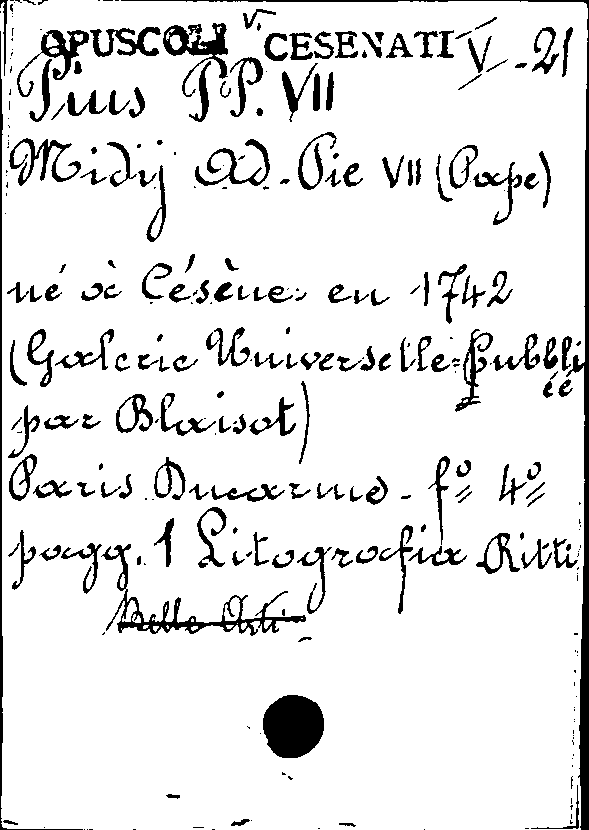 OPUSCOLI V. CESENATI V - 21
Pius PP. VII
Midij Ad. Pie VII (Pape)
né à Césène en 1742
(Galerie Universelle Pubbli
éé
par Blaisot)
Paris Ducarme - fº 4º
pagg. 1 Litografia Ritti
Belle Arti